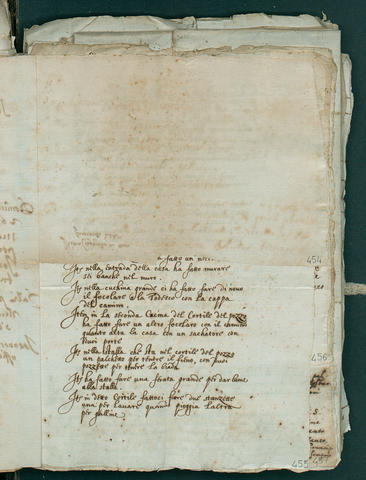 a fatto un nici.
Itẽ nella entrada della casa ha fatto murare
sti banche nel muro.
Itẽ nella cuchina grande ci ha fatto fare di nouo
il focolare a la Todesca con la cappa
del camin.
Itẽ in la seconda del Cortile del pozzo
ha fatto fare un altro focolaro con il camino
quanto alta la casa con un sachatore con
doue porte
Itẽ nella stalla che sta nel cortile del pozzo
un palchetto per tenere il fieno, con
per tenere la biada
Itẽ ha fatto fare una strata grande per dar bene
alla stalla.
Itẽ in detto Cortile fattoci fare due stanzette
una per lauare quando pioggia laltra
per galline
454
456
455